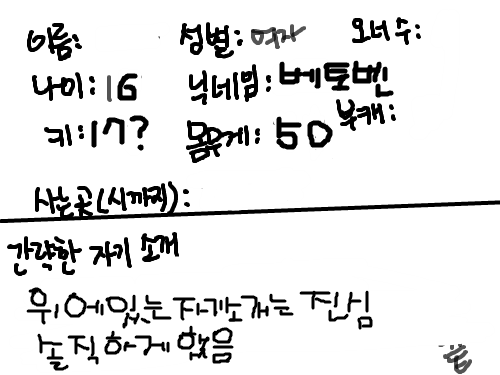 이름: 성별: 여자 오너 수:
나이: 16 닉네임: 베토벤
키: 17? 몸무게: 50 부캐:
사는곳(시까지):
간략한 자기 소개
위에있는 자기소개는 진심
솔직하게 했음